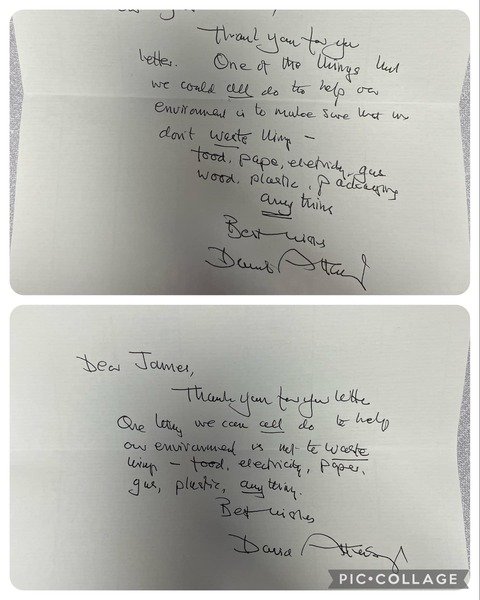 Thank you for your
letter. One of the things that
we could all do to help our
environment is to make sure that we
don't waste things –
food, paper, electricity, gas
wood, plastic, packaging
anything
Best wishes
David Attenborough
Dear James,
Thank you for your letter
One thing we can all do to help
our environment is not to waste
things – food, electricity, paper,
gas, plastic, anything.
Best wishes
David Attenborough
PIC•COLLAGE